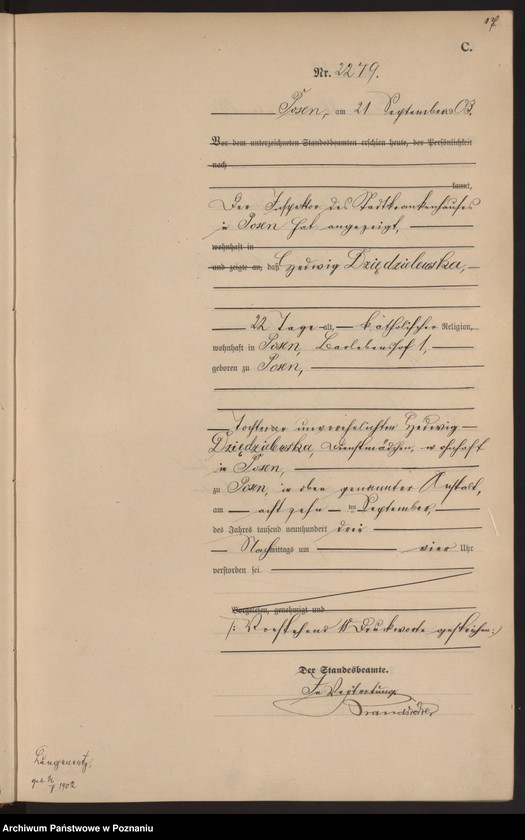 17.
C.
Nr. 2279.
Posen, am 21 September 03.
Vor dem unterzeichneten Standesbeamten erschien heute, der Persönlichkeit
nach
kannt,
Der Inspektor des Stadtkrankenhauses
in Posen hat angezeigt,
wohnhaft in
und zeigte an, daß Hedwig Dziędzielewska,
22 Tage alt, katholischer Religion,
wohnhaft in Posen, 1,
geboren zu Posen,
Tochter der unverehelichten Hedwig
Dziędzielewska, Dienstmädchen, wohnhaft
in Posen,
zu Posen, in oben genannter Anstalt,
am achtzehn ten September
des Jahres tausend neunhundert drei
Nachmittags um vier Uhr
verstorben sei.
Vorgelesen, genehmigt und
/: Vorstehend 11 Druckworte gestrichen :/
Der Standesbeamte.
In Vertretung
1902
Archiwum Państwowe w Poznaniu